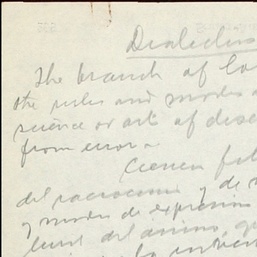 Dialectics
The branch of lo
the rules and modes o
science or art of disc
from error.
Ciencia fil
del raciocinio y de s
y modos de expresión
del ánimo, q